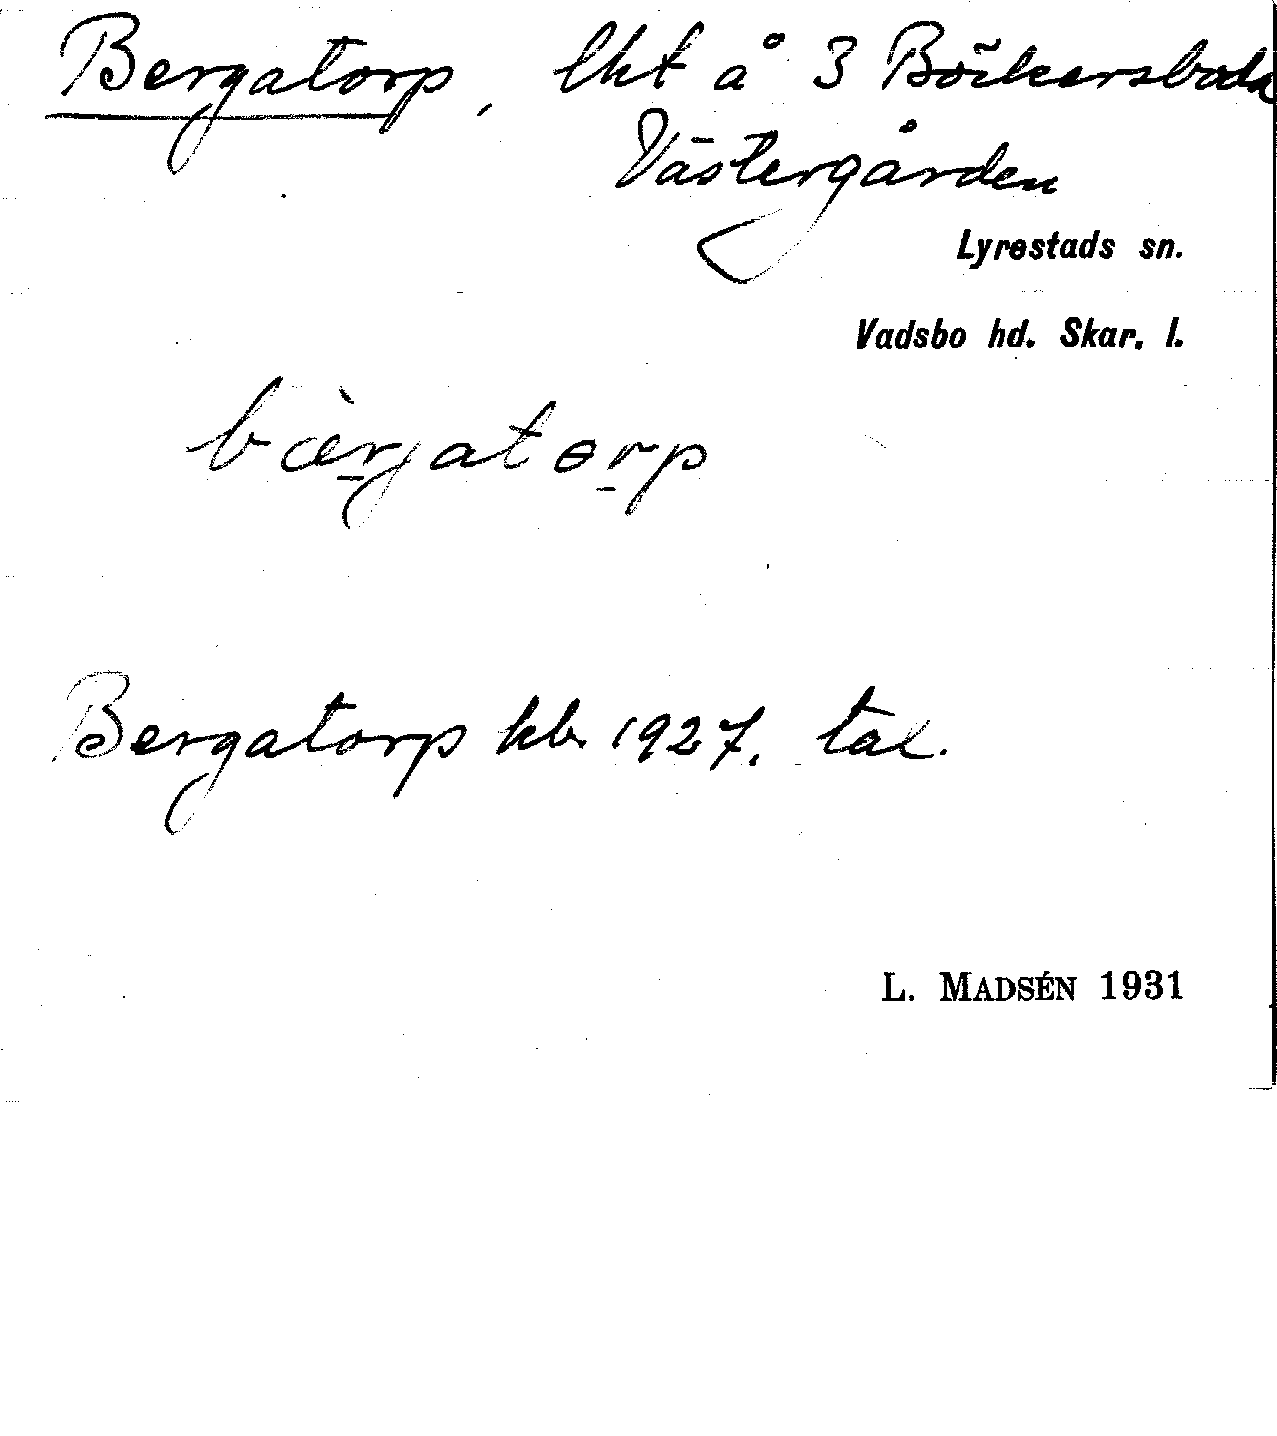 Bergatorp, lht å 3 Böckersboda
Västergården
Lyrestads sn.
Vadsbo hd. Skar. l.
bærjatɵrp
Bergatorp kb. 1927. tal.
L. MADSÉN 1931